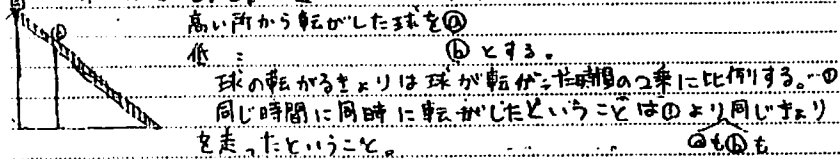 高い所から転がした球をⓐ
低 〃 ⓑとする。
球の転がるきょりは球が転がった時間の2乗に比例する。…①
同じ時間に同時に転がしたということは①より同じきょり
を走ったということ。 ⓐもⓑも